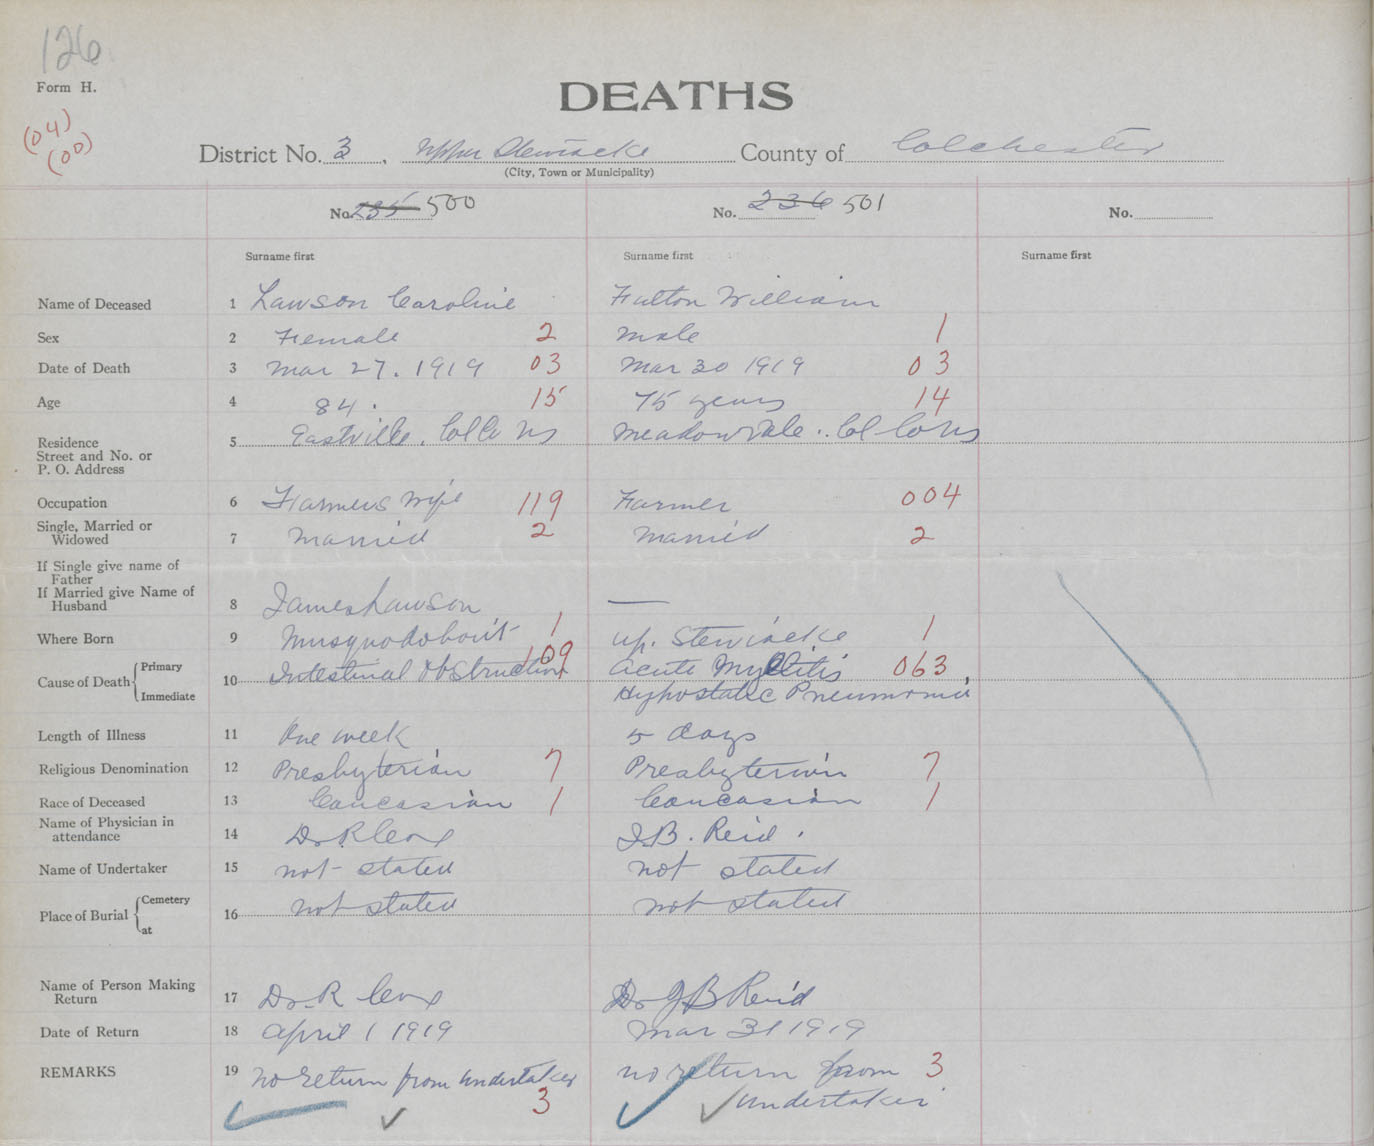 126
Form H.
DEATHS
(04)
(00)
District No. 3, Upper Stewiacke County of Colchester
(City, Town or Municipality)
No. 235 500 No. 236 501 No.
Surname first Surname first Surname first
Name of Deceased 1 Lawson Caroline Fulton William
Sex 2 Female 2 male 1
Date of Death 3 Mar 27. 1919 03 Mar 30 1919 03
Age 4 84. 15 75 years 14
Residence 5 Eastville. Col Co NS Meadowvale. Col Co NS
Street and No. or
P. O. Address
Occupation 6 Farmers Wife 119 Farmer 004
Single, Married or
Widowed 7 Married 2 Married 2
If Single give name of
Father
If Married give Name of
Husband 8 James Lawson —
Where Born 9 Musquodoboit 1 up. Stewiacke 1
Cause of Death { Primary 10 Intestinal Obstruction 109 acute Myelitis 063
Immediate Hypostatic Pneumonia
Length of Illness 11 One week 5 days
Religious Denomination 12 Presbyterian 7 Presbyterian 7
Race of Deceased 13 Caucasian 1 Caucasian 1
Name of Physician in
attendance 14 Dr R Cox J.B. Reid.
Name of Undertaker 15 not stated not stated
Place of Burial { Cemetery 16 not stated not stated
at
Name of Person Making
Return 17 Dr. R Cox Dr J B Reid
Date of Return 18 April 1 1919 Mar 31 1919
REMARKS 19 no return from undertaker no return from 3
3 undertaker